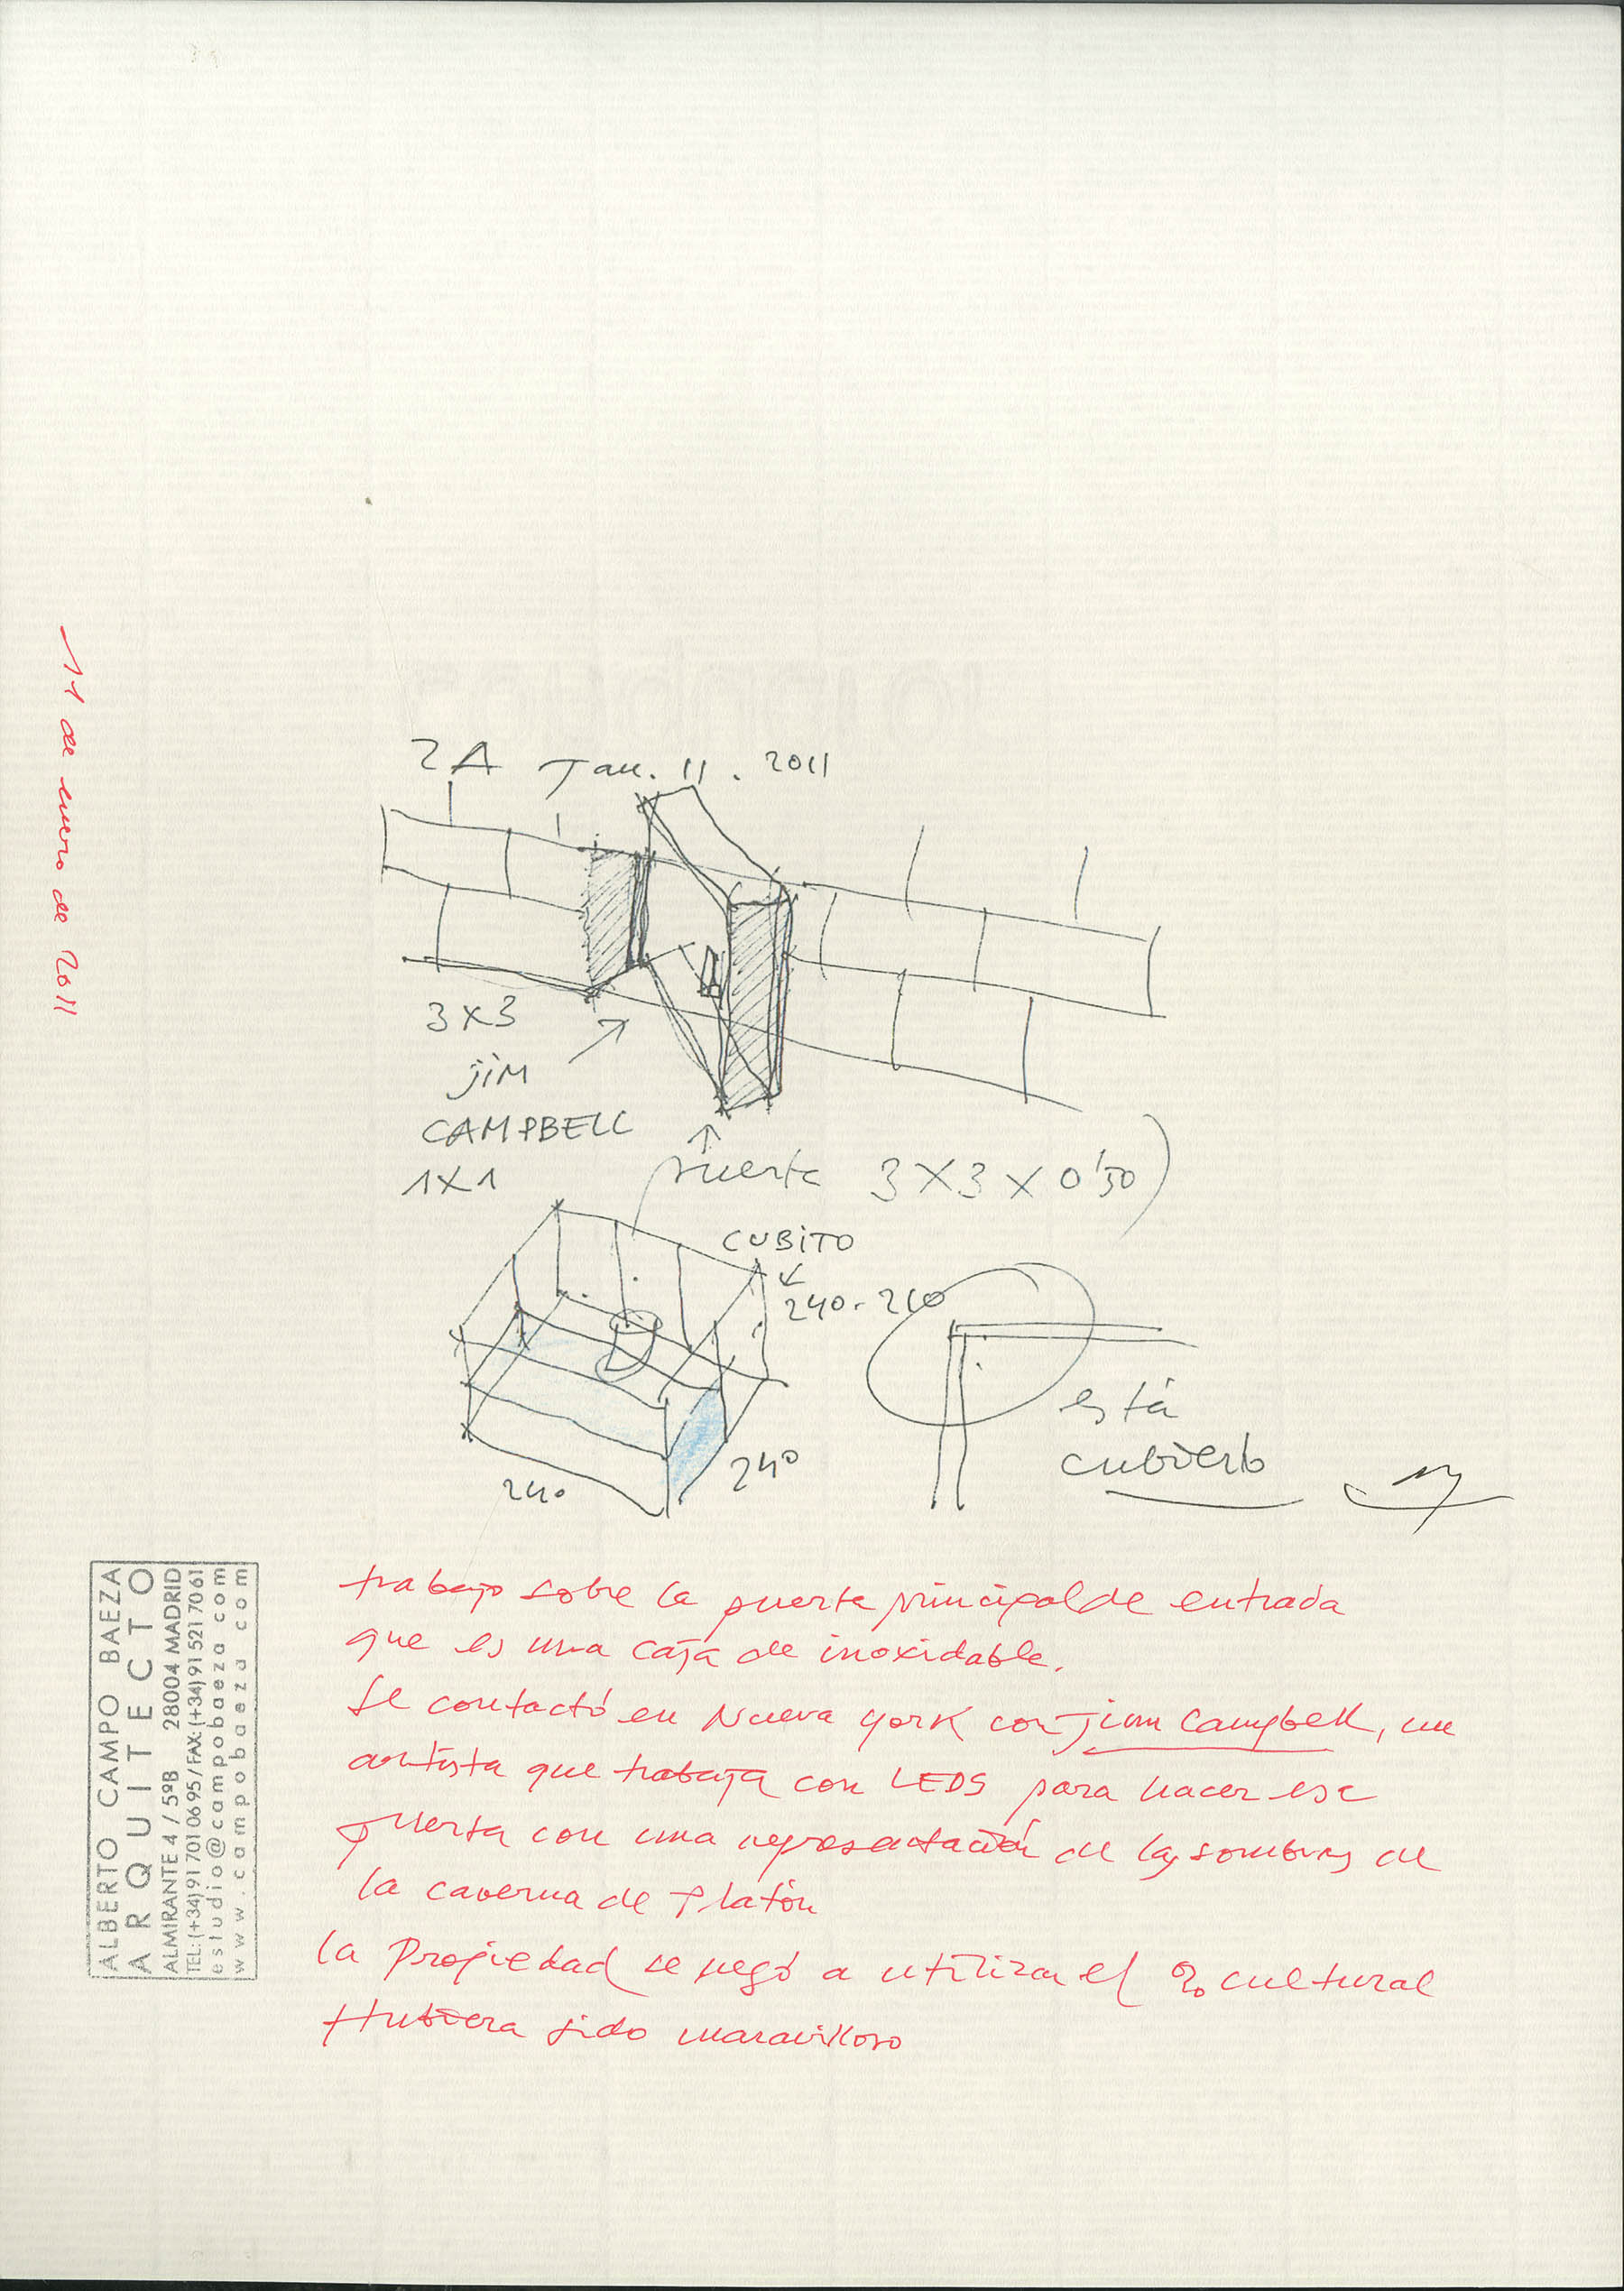 11 de enero de 2011
ZA Jan. 11. 2011
3x3
jim
CAMPBELL
1x1
puerta 3x3x0'50)
CUBiTO
240-260
240
240
está
cubierto
trabajo sobre la puerta principal de entrada
que es una caja de inoxidable.
Se contactó en Nueva York con jim Campbell, un
artista que trabaja con LEDS para hacer esa
puerta con una representación de las sombras de
la caverna de Platón
la Propiedad se negó a utilizar el % cultural
Hubiera sido maravilloso
ALBERTO CAMPO BAEZA
ARQUITECTO
ALMIRANTE 4 / 5ºB 28004 MADRID
TEL: (+34) 91 701 06 95 / FAX: (+34) 91 521 70 61
estudio@campobaeza.com
www.campobaeza.com